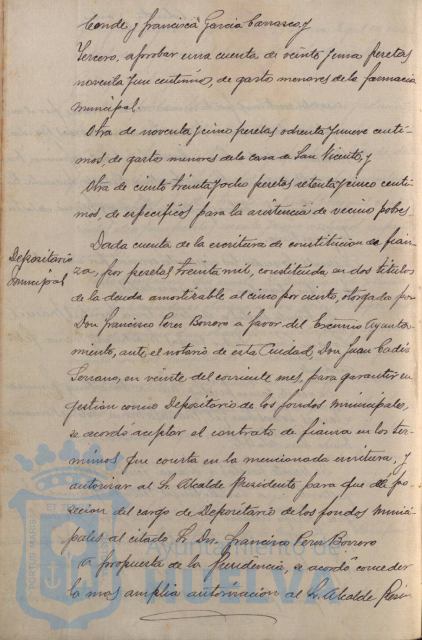 Conde y Francisca Garcia Carrasco, y
Tercero, aprobar una cuenta de veinte y una pesetas
noventa y un centimos, de gastos menores de la farmacia
municipal.
Otra de noventa y cinco pesetas ochenta y nueve centi-
mos, de gastos menores de la casa de San Vicente, y
Otra de ciento treinta y ocho pesetas setenta y cinco centi-
mos, de especificos para la asistencia de vecinos pobres.
Depositario
municipal
Dada cuenta de la escritura de constitucion de fian-
za, por pesetas treinta mil, constituida en dos titulos
de la deuda amortizable al cinco por ciento, otorgada por
Don Francisco Perez Borrero á favor del Excmo Ayunta-
miento, ante el notario de esta Ciudad, Don Juan Cadiz
Serrano, en veinte del corriente mes, para garantir su
gestion como Depositario de los fondos municipales,
se acordó aceptar el contrato de fianza en los ter-
minos que consta en la mencionada escritura, y
autorizar al Sr. Alcalde Presidente para que dé po-
sesion del cargo de Depositario de los fondos munici-
pales al citado Sr. Dn. Francisco Perez Borrero
A propuesta de la Presidencia, se acordó conceder
la mas amplia autorizacion al Sr. Alcalde Presi-
PORTUS MARIS
Ayuntamiento de
HUELVA